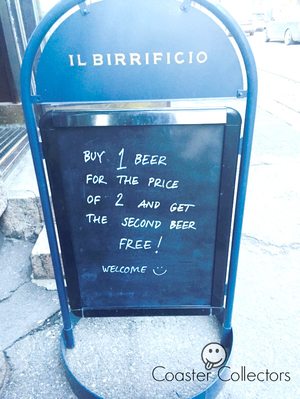 IL BIRRIFICIO
BUY 1 BEER
FOR THE PRICE
OF 2 AND GET
THE SECOND BEER
FREE!
WELCOME
Coaster Collectors